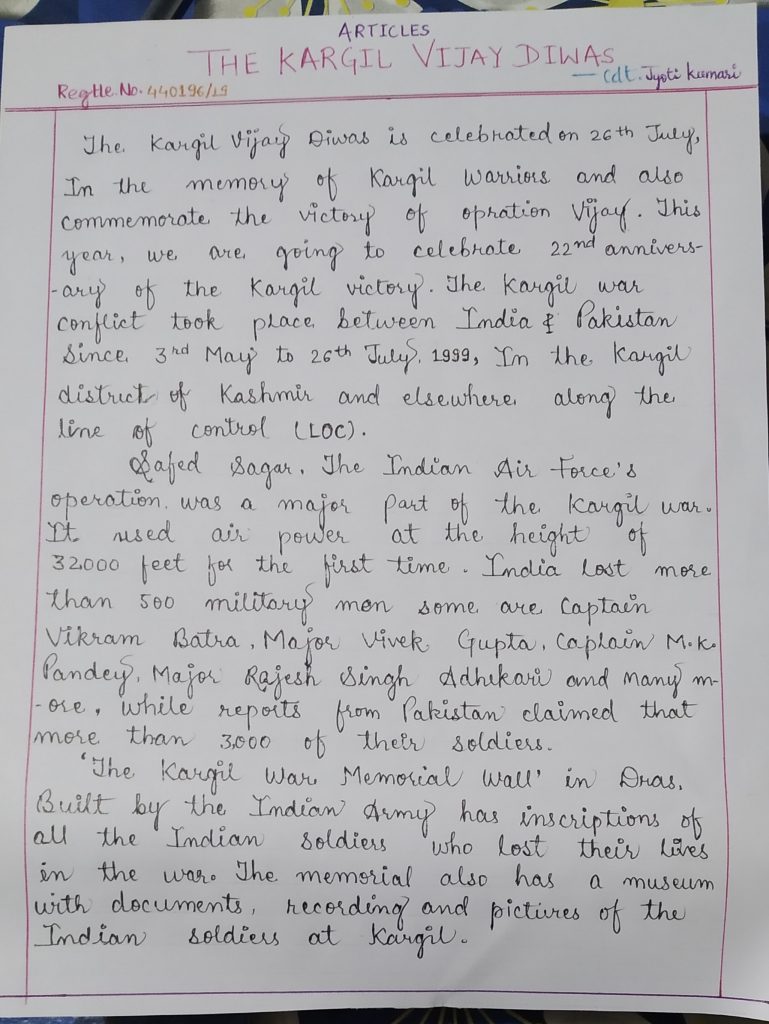 ARTICLES
THE KARGIL VIJAY DIWAS
— Cdt. Jyoti Kumari
Regtle. No. 440196/19
The Kargil Vijay Diwas is celebrated on 26th July,
In the memory of Kargil Warriors and also
commemorate the victory of opration Vijay. This
year, we are going to celebrate 22nd annivers-
-ary of the Kargil victory. The Kargil war
conflict took place between India & Pakistan
Since 3rd May to 26th July, 1999, In the Kargil
district of Kashmir and elsewhere along the
line of control (LOC).
Safed Sagar, The Indian Air Force's
operation was a major part of the Kargil war.
It used air power at the height of
32,000 feet for the first time. India lost more
than 500 military men some are Captain
Vikram Batra, Major Vivek Gupta, Captain M.K.
Pandey, Major Rajesh Singh Adhikari and many m-
-ore, while reports from Pakistan claimed that
more than 3,000 of their soldiers.
'The Kargil War Memorial Wall' in Dras,
Built by the Indian Army has inscriptions of
all the Indian soldiers who lost their lives
in the war. The memorial also has a museum
with documents, recording and pictures of the
Indian soldiers at Kargil.